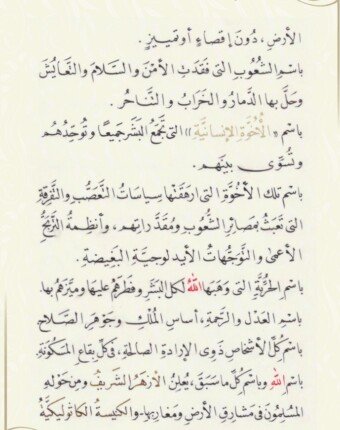 الأرضِ، دُونَ إقصاءٍ أو تمييزٍ.
باسمِ الشُّعُوبِ التى فقَدَتِ الأمْنَ والسَّلامَ والتَّعايُشَ
وحَلَّ بها الدَّمارُ والخَرَابُ والتَّناحُر.
باسمِ «الأُخُوَّةِ الإنسانيَّةِ» التى تَجمَعُ البَشَرَ جميعًا، وتُوَحِّدُهُم
وتُسَوِّى بينَهم.
باسمِ تلكَ الأُخُوَّةِ التى أرهَقَتْها سِياساتُ التَّعَصُّبِ والتَّفرِقةِ
التى تَعبَثُ بمَصائِرِ الشُّعُوبِ ومُقَدَّراتِهم، وأنظِمةُ التَّرَبُّحِ
الأعمَى، والتَّوَجُّهاتُ الأيدلوجيَّةِ البَغِيضةِ.
باسمِ الحُرِّيَّةِ التى وَهَبَها اللهُ لكلِّ البَشَرِ وفطَرَهُم عليها ومَيَّزَهُم بها.
باسمِ العَدْلِ والرَّحمةِ، أساسِ المُلْكِ وجَوْهَرِ الصَّلاحِ.
باسمِ كُلِّ الأشخاصِ ذَوِى الإرادةِ الصالحةِ، فى كلِّ بِقاعِ المَسكُونَةِ.
باسمِ اللهِ وباسمِ كُلِّ ما سَبَقَ، يُعلِنُ الأزهَرُ الشريفُ ومِن حَوْلِه
المُسلِمُونَ فى مَشارِقِ الأرضِ ومَغارِبِها، والكنيسةُ الكاثوليكيَّةُ